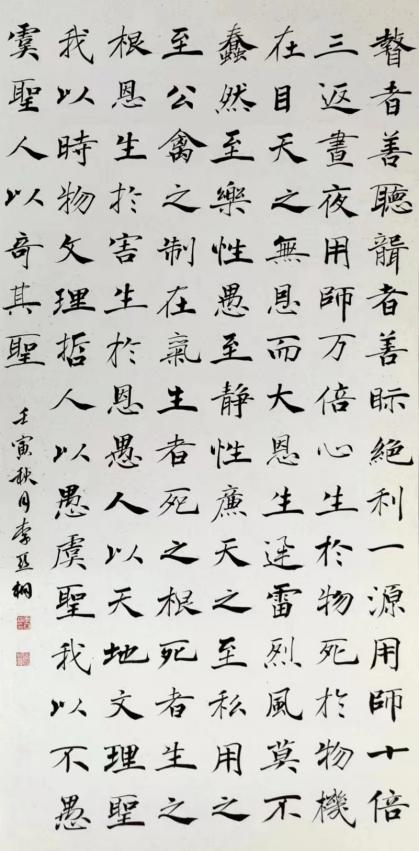 瞽者善聽聾者善眎絕利一源用師十倍
三返晝夜用師万倍心生於物死於物機
在目天之無恩而大恩生迅雷烈風莫不
蠢然至樂性愚至靜性廉天之至私用之
至公禽之制在氣生者死之根死者生之
根恩生於害生於恩愚人以天地文理聖
我以時物文理哲人以愚虞聖我以不愚
虞聖人以奇其聖
壬寅秋月李亞